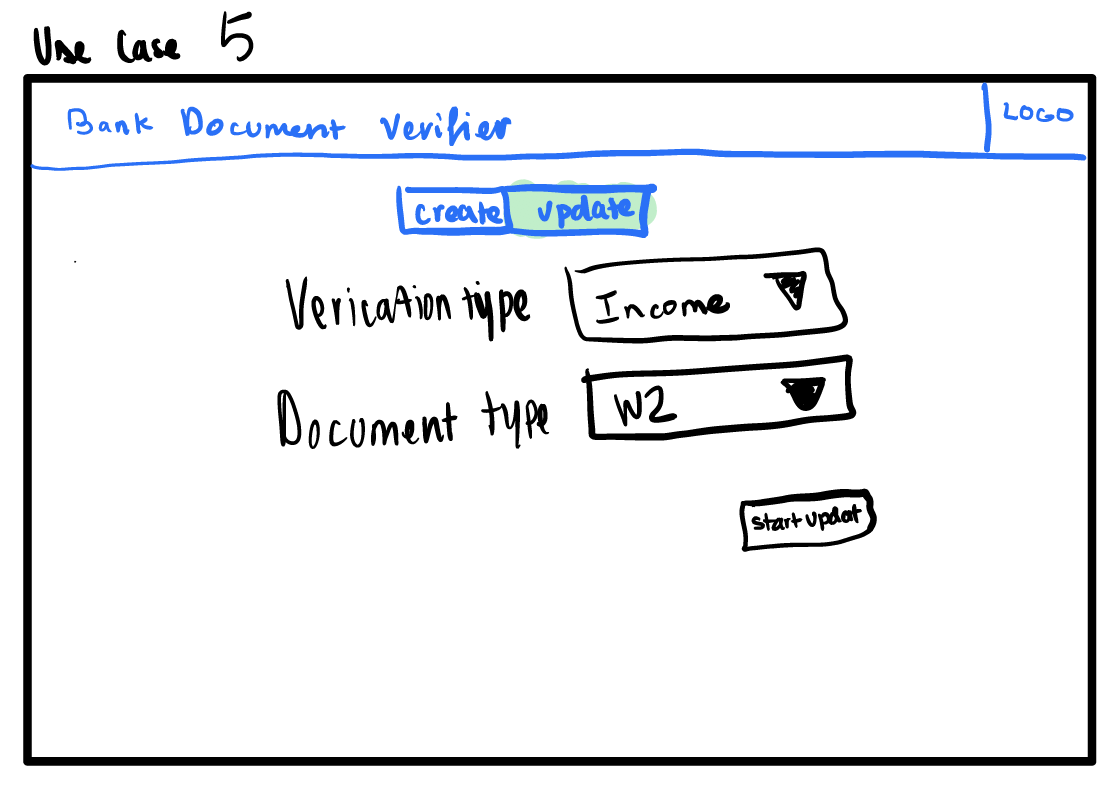 Use Case 5
Bank Document Verifier
LOGO
create update
Verication type Income
Document type W2
start updat